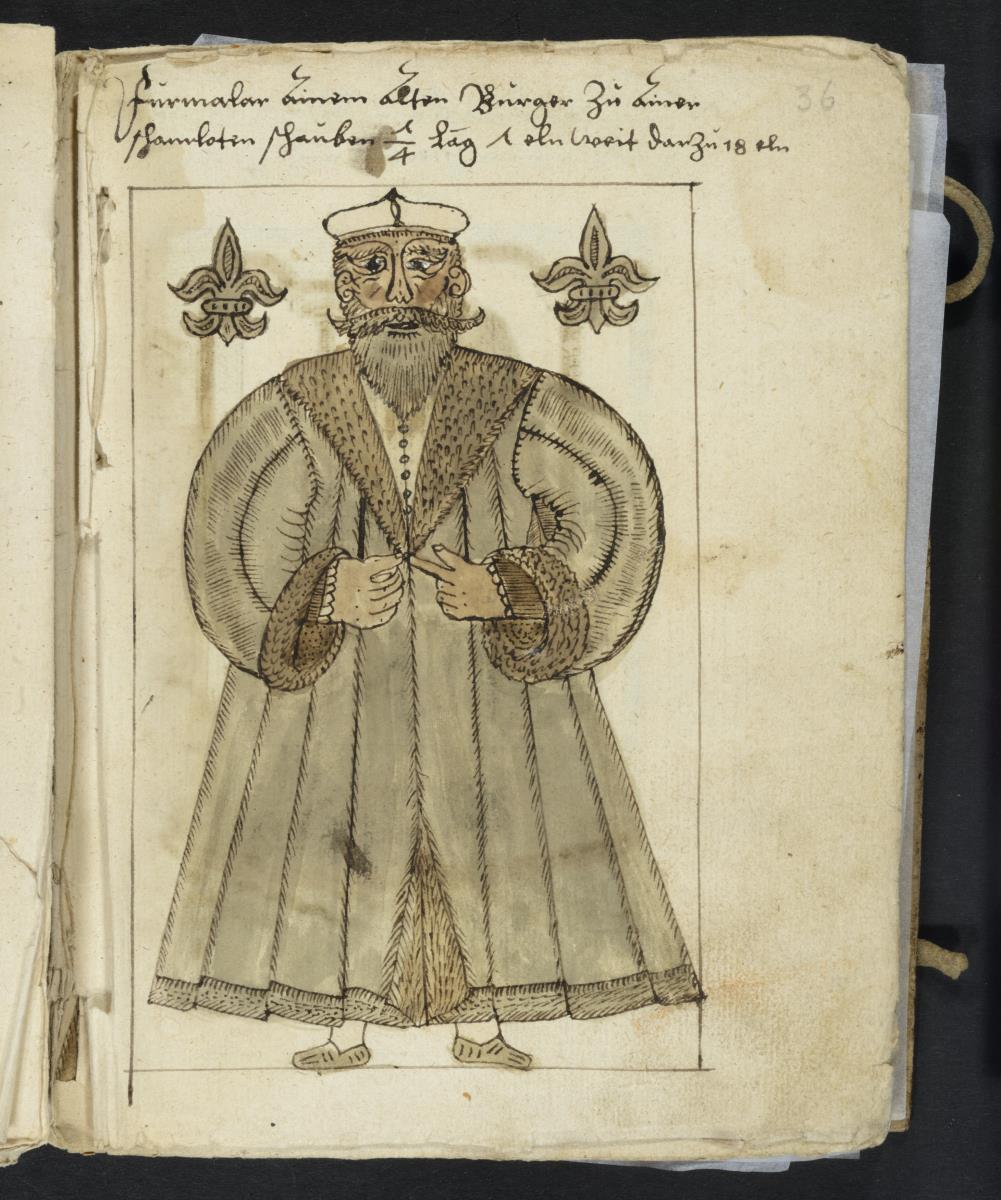 furmalar Ainem Alten Burger Zu Ainer
schamloten schauben 1/4 lāg 1 eln weit darzu 18 eln
36